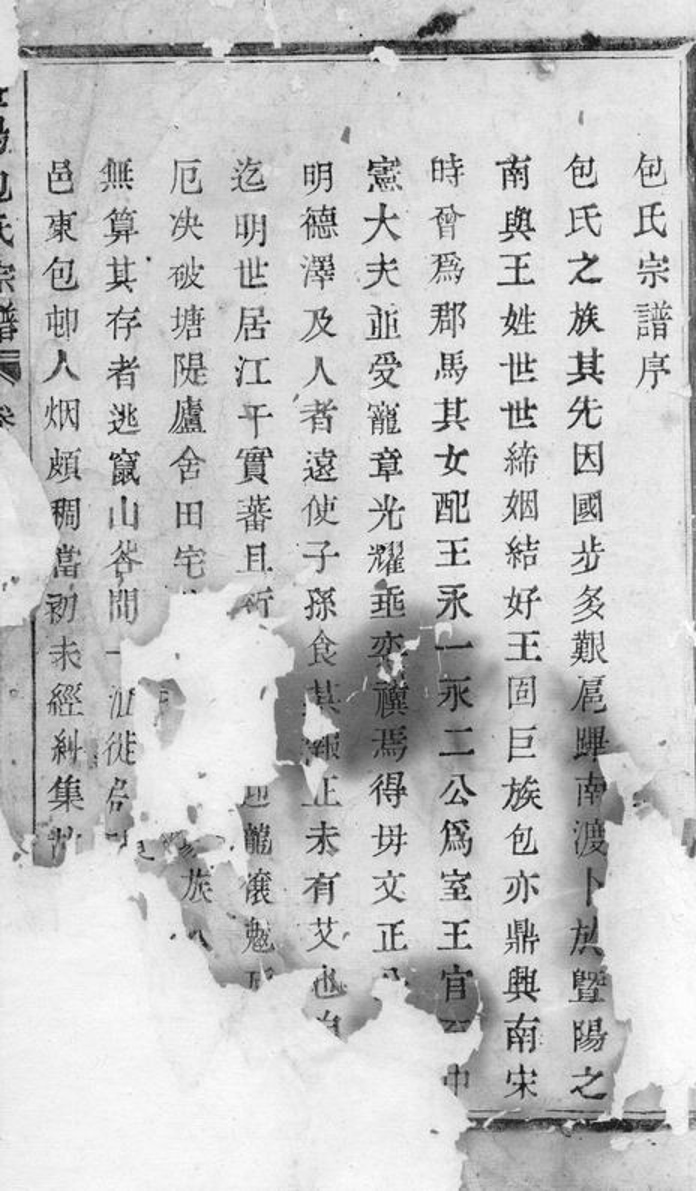 包氏宗譜序
包氏之族其先因國步多艱扈蹕南渡卜於暨陽之
南與王姓世世締姻結好王固巨族包亦鼎興南宋
時曾爲郡馬其女配王永一永二公爲室王官至中
憲大夫並受寵章光耀垂奕禩焉得毋文正公
明德澤及人者遠使子孫食其報正未有艾也自
迄明世居江干實蕃且衍龍
厄决破塘隄廬舍田宅族人
無算其存者逃竄山谷間一
邑東包邨人烟頗稠當初未經糾集
包氏宗譜